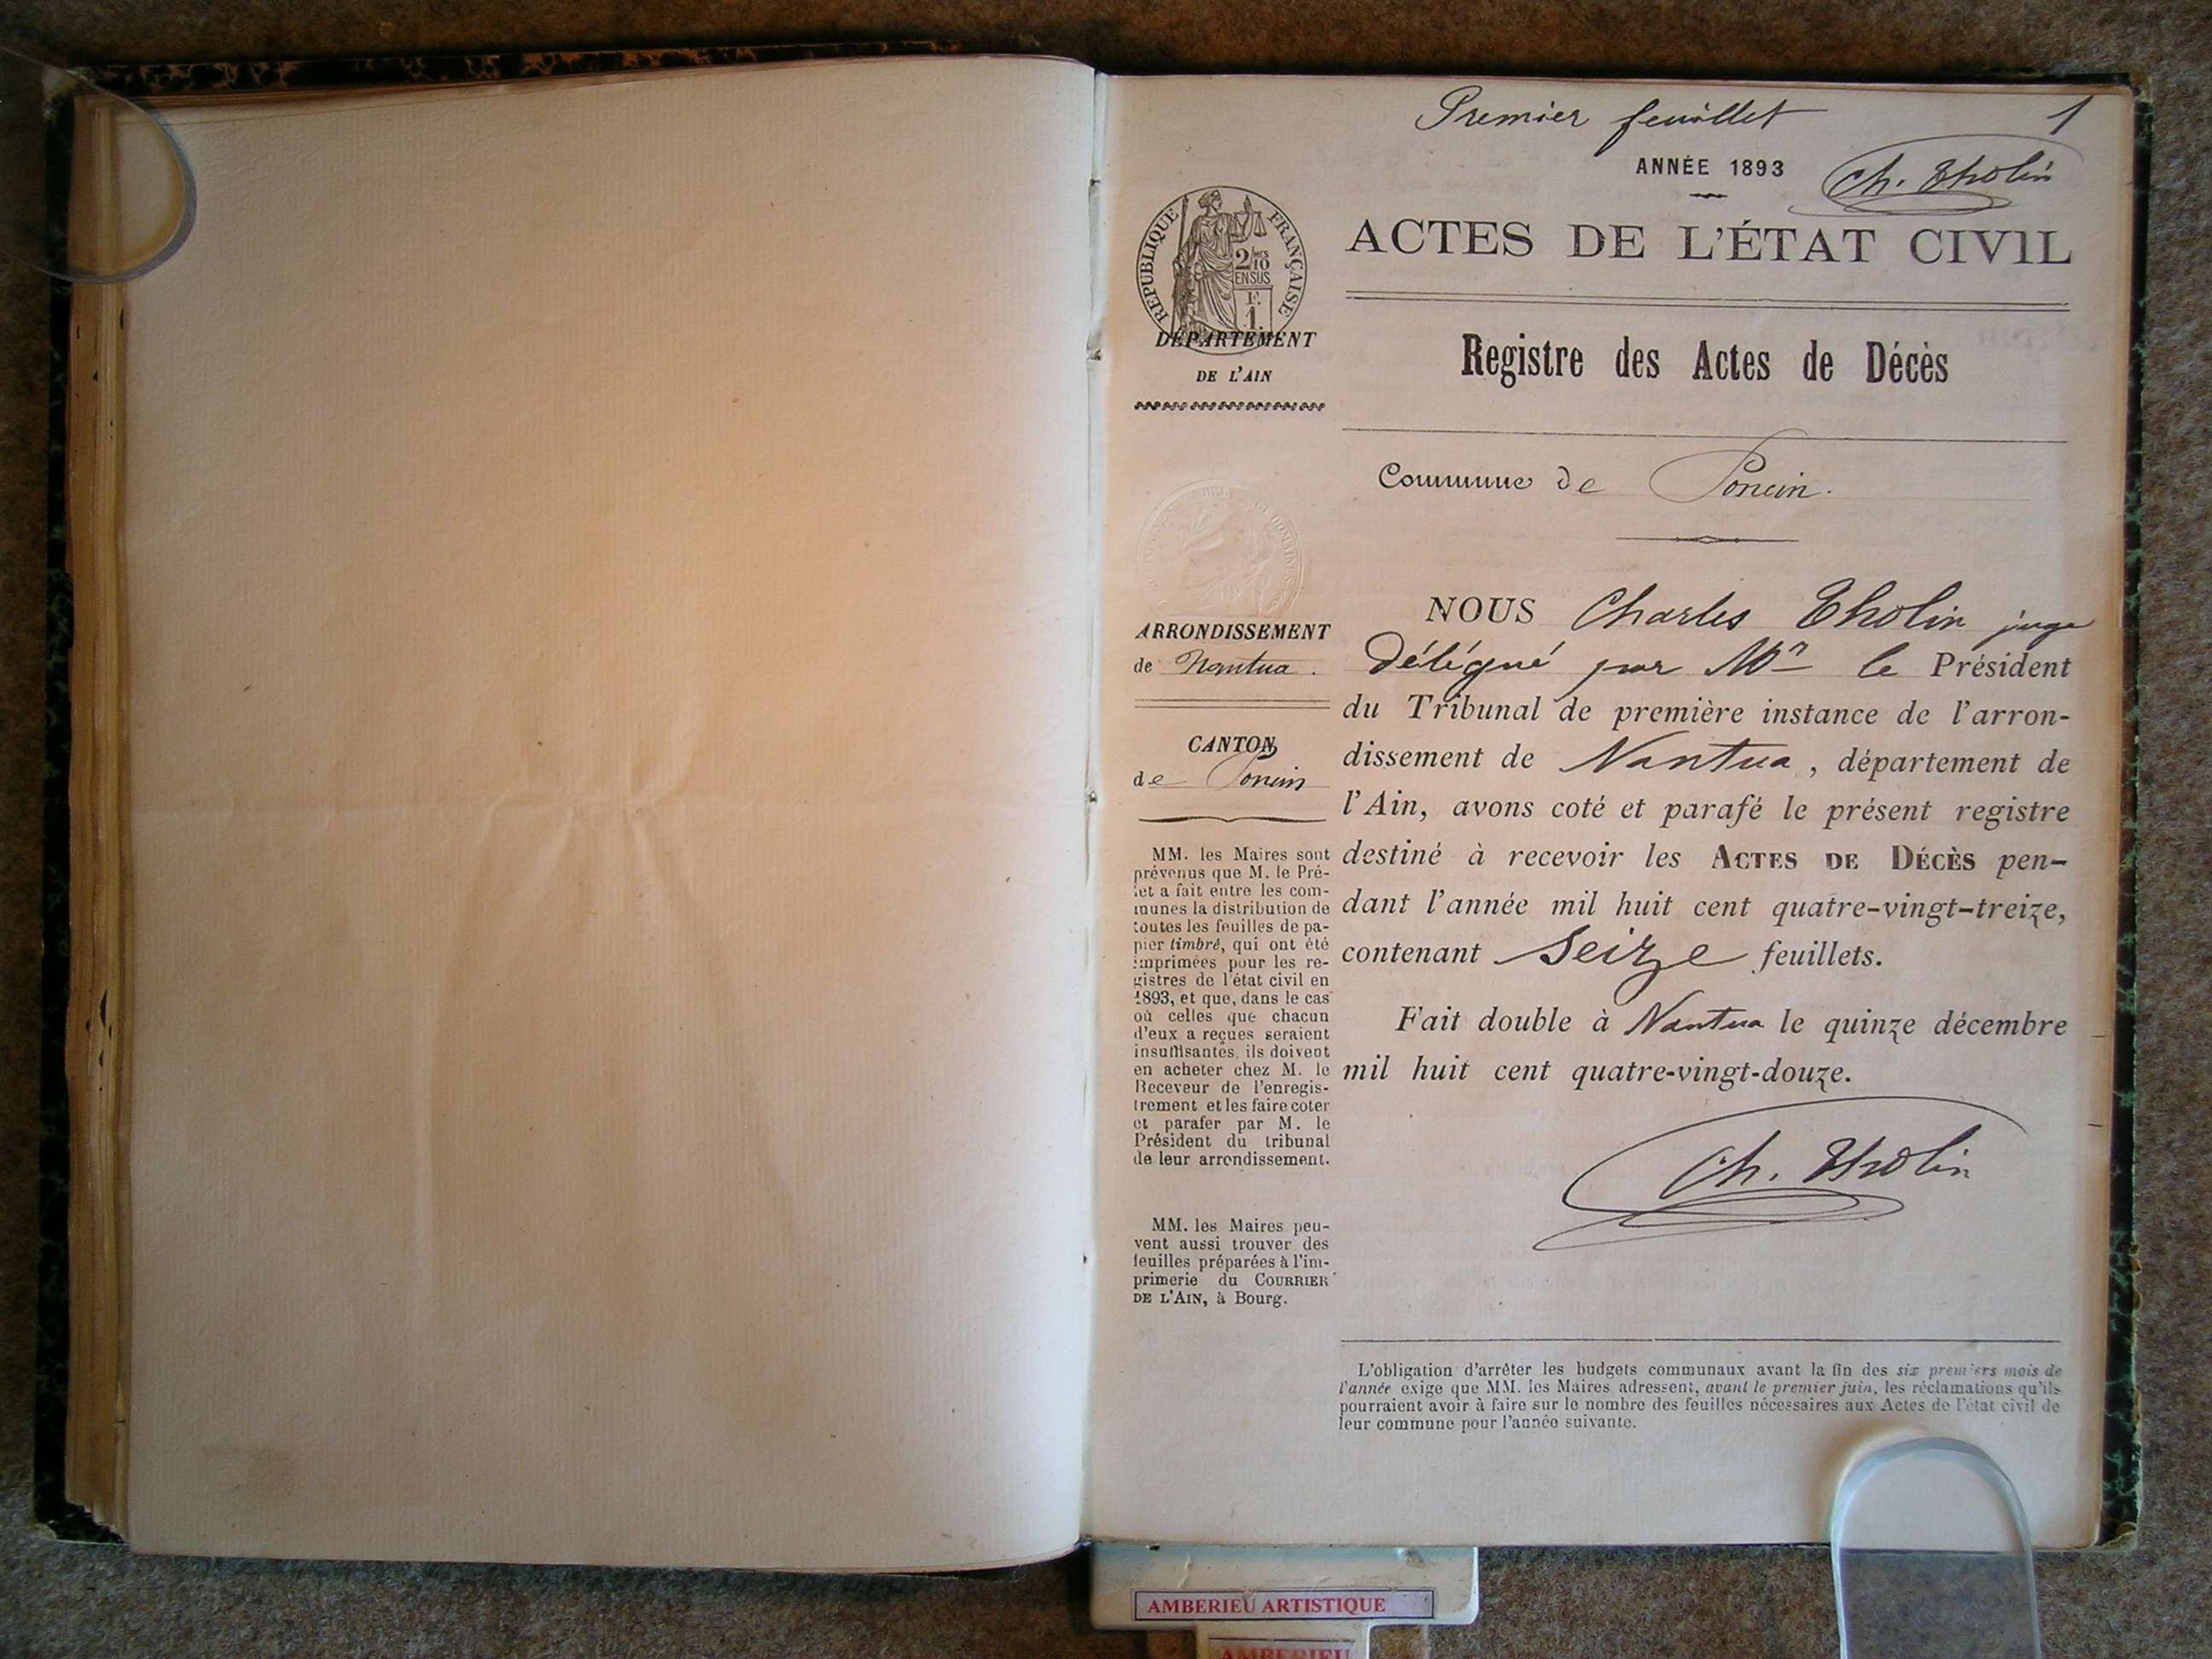 Premier feuillet 1
ANNÉE 1893
Ch. Tholin
ACTES DE L'ÉTAT CIVIL
RÉPUBLIQUE FRANÇAISE
2/10
EN SUS
F.
1.
DÉPARTEMENT
DE L'AIN
Registre des Actes de Décès
Commune de Poncin.
ARRONDISSEMENT
de Nantua.
CANTON
de Poncin
MM. les Maires sont
prévenus que M. le Pré-
fet a fait entre les com-
munes la distribution de
toutes les feuilles de pa-
pier timbré, qui ont été
imprimées pour les re-
gistres de l'état civil en
1893, et que, dans le cas
où celles que chacun
d'eux a reçues seraient
insuffisantes, ils doivent
en acheter chez M. le
Receveur de l'enregis-
trement et les faire coter
et parafer par M. le
Président du tribunal
de leur arrondissement.
MM. les Maires peu-
vent aussi trouver des
feuilles préparées à l'im-
primerie du COURRIER
DE L'AIN, à Bourg.
NOUS Charles Tholin juge
délégué par Mr le Président
du Tribunal de première instance de l'arron-
dissement de Nantua, département de
l'Ain, avons coté et parafé le présent registre
destiné à recevoir les ACTES DE DÉCÈS pen-
dant l'année mil huit cent quatre-vingt-treize,
contenant seize feuillets.
Fait double à Nantua le quinze décembre
mil huit cent quatre-vingt-douze.
Ch. Tholin
L'obligation d'arrêter les budgets communaux avant la fin des six premiers mois de
l'année exige que MM. les Maires adressent, avant le premier juin, les réclamations qu'ils
pourraient avoir à faire sur le nombre des feuilles nécessaires aux Actes de l'état civil de
leur commune pour l'année suivante.
AMBERIEU ARTISTIQUE
AMBERIEU